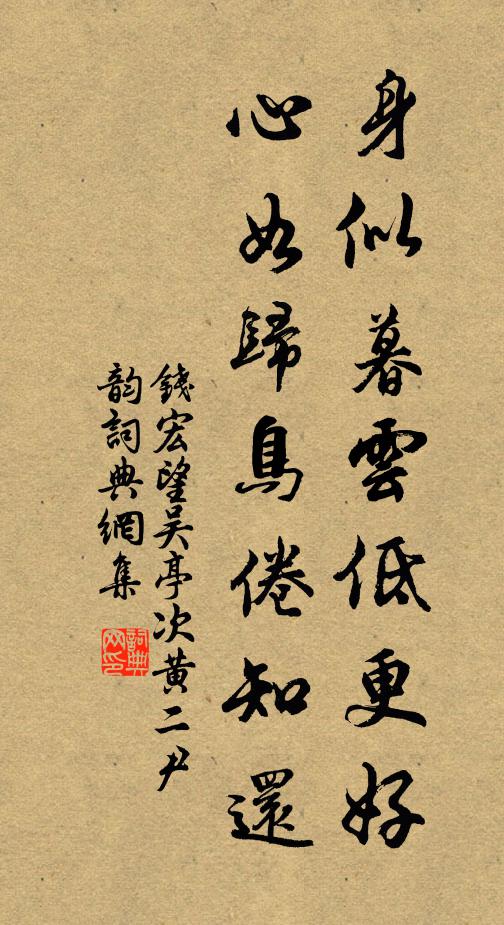 身似暮雲低更好
心如歸鳥倦知還
錢宏望吴亭次黄二尹
韵詞典網集
詞典网印